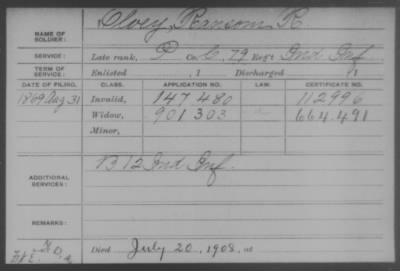 NAME OF SOLDIER: Olvey, Ransom R.
SERVICE: Late rank, P Co. C, 79 Reg't Ind Inf
TERM OF SERVICE: Enlisted , 1 Discharged , 1
DATE OF FILING. CLASS. APPLICATION NO. LAW. CERTIFICATE NO.
1869 Aug 31 Invalid, 147 480 112996
Widow, 901 303 664.491
Minor,
ADDITIONAL SERVICES: B 12 Ind Inf.
REMARKS:
Died July 20, 1908, at